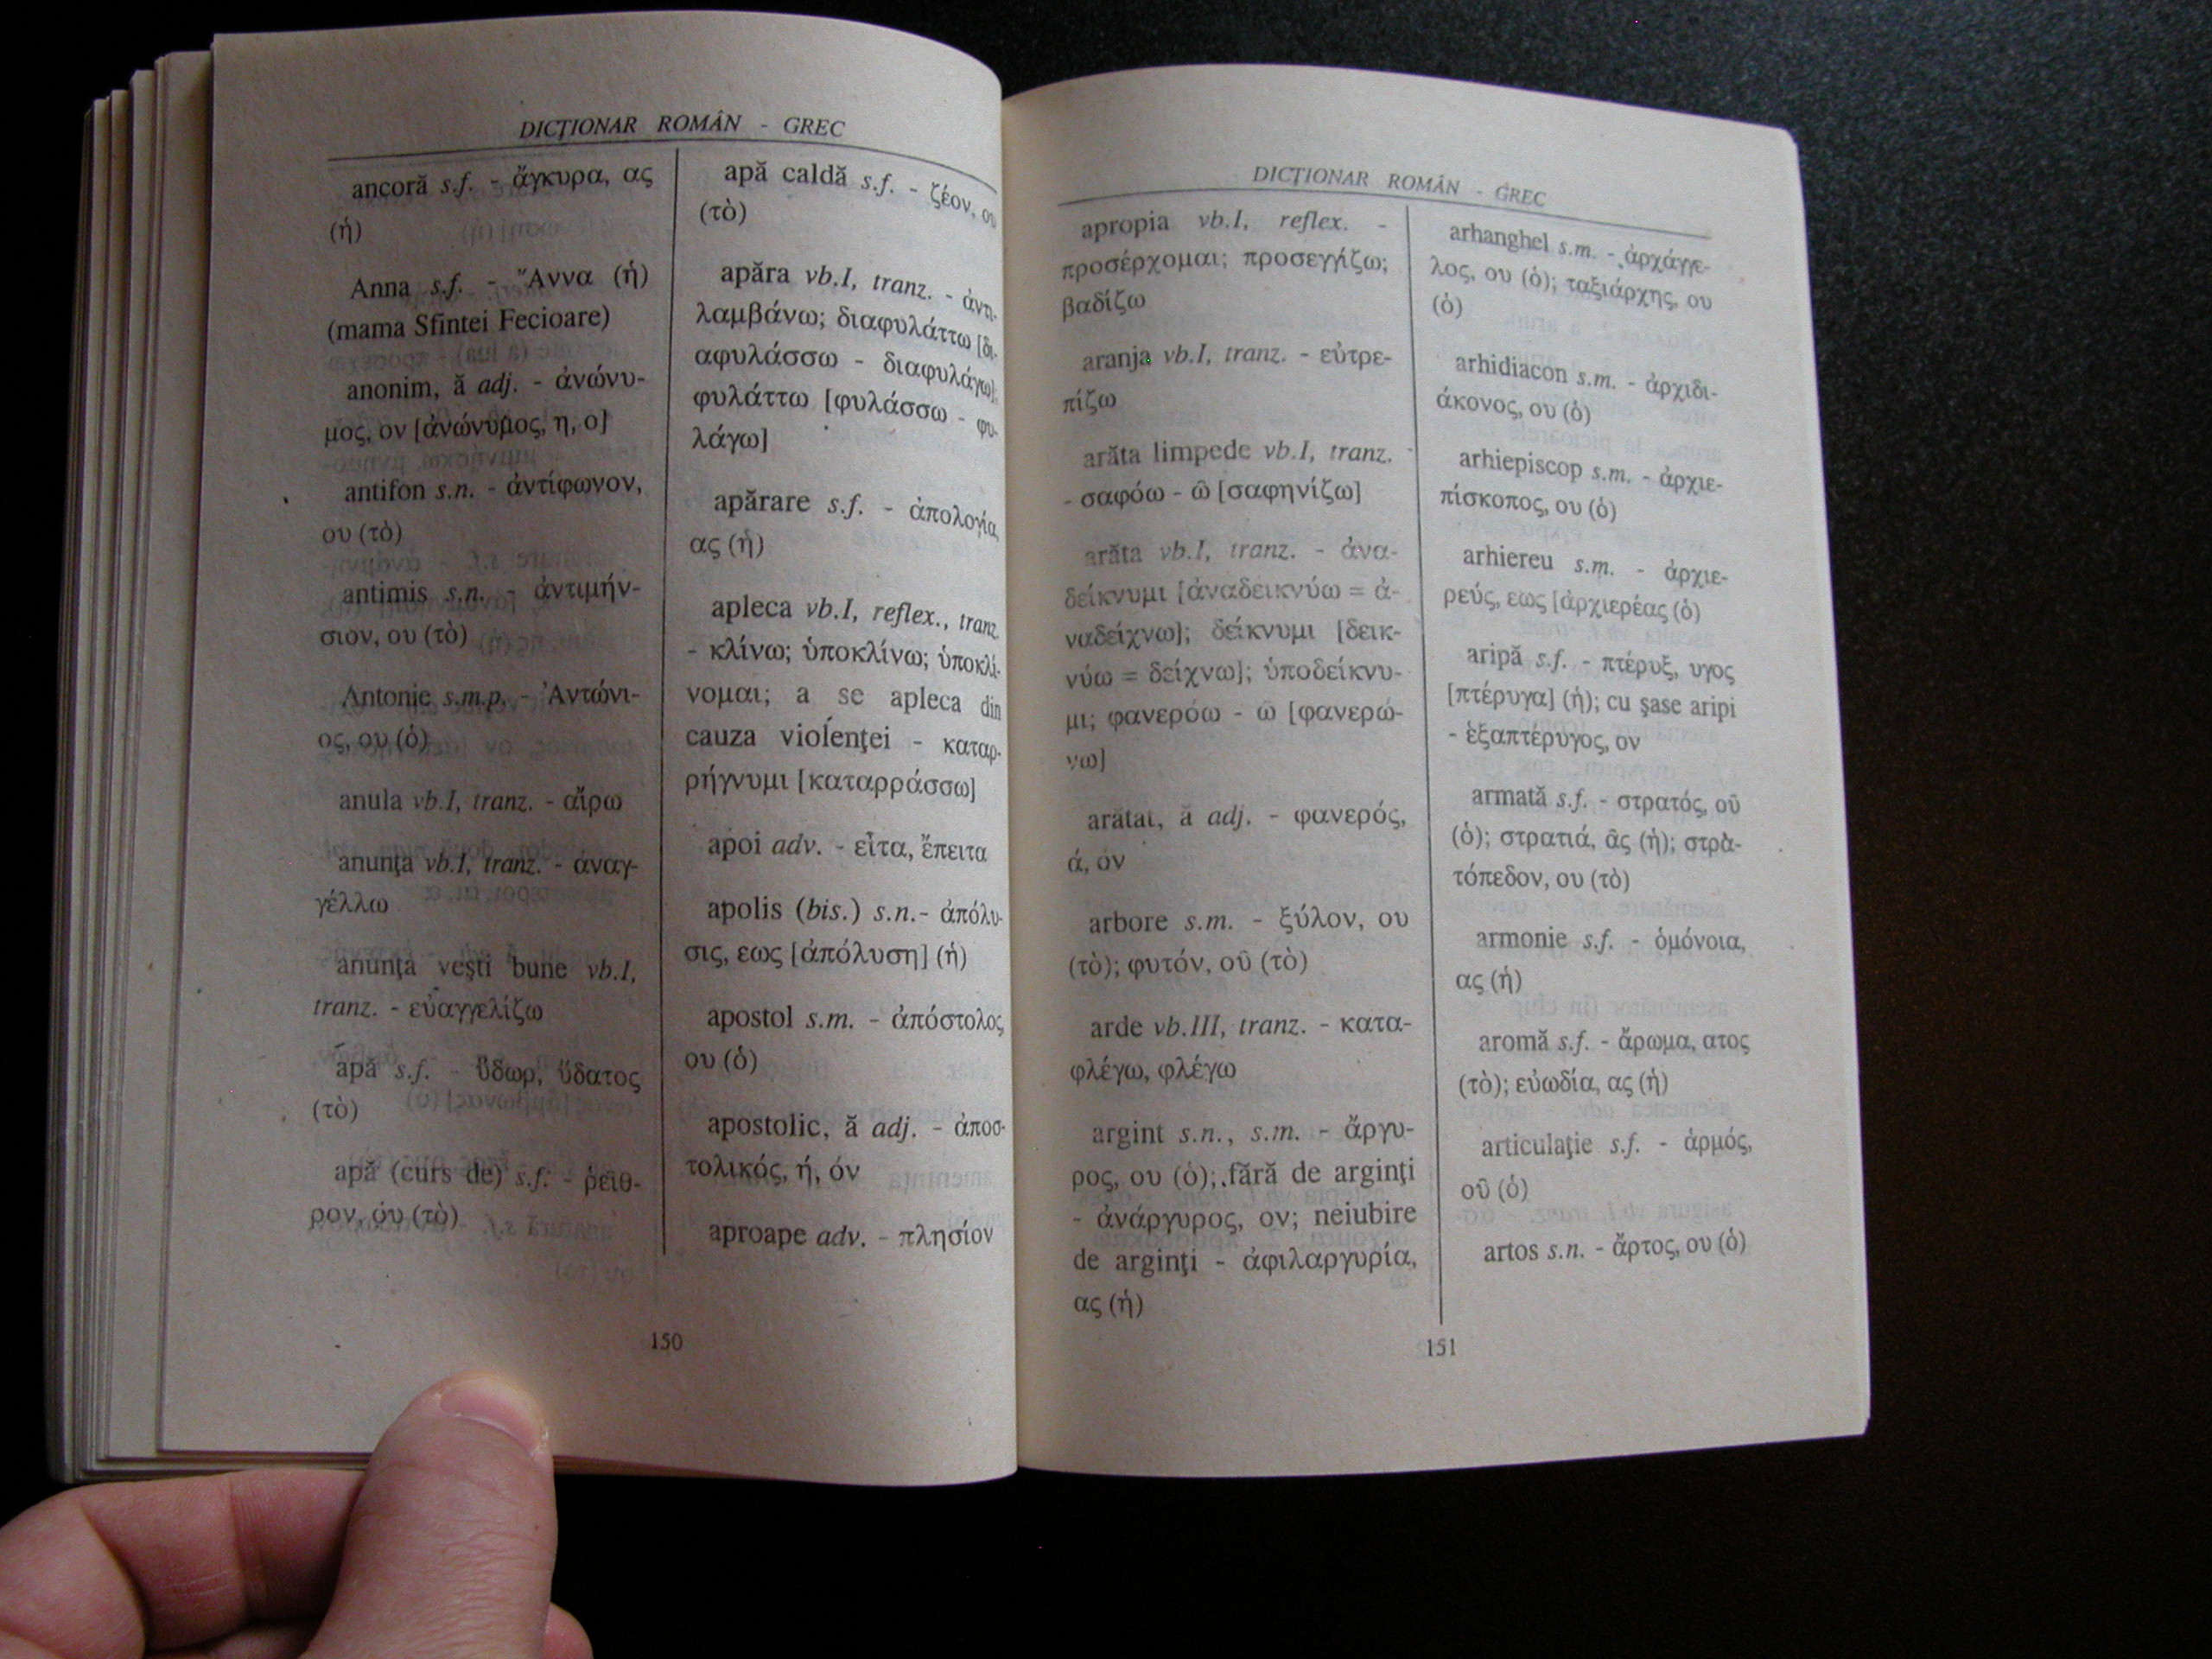 DICŢIONAR ROMÂN - GREC
ancoră s.f. - ἄγκυρα, ας
(ἡ)
Anna s.f. - Ἄννα (ἡ)
(mama Sfintei Fecioare)
anonim, ă adj. - ἀνώνυ-
μος, ον [ἀνώνυμος, η, ο]
antifon s.n. - ἀντίφωνον,
ου (τὸ)
antimis s.n. - ἀντιμήν-
σιον, ου (τὸ)
Antonie s.m.p. - Ἀντώνι-
ος, ου (ὁ)
anula vb.I, tranz. - αἴρω
anunţa vb.I, tranz. - ἀναγ-
γέλλω
anunţa veşti bune vb.I,
tranz. - εὐαγγελίζω
apă s.f. - ὕδωρ, ὕδατος
(τὸ)
apă (curs de) s.f. - ῥεῖθ-
ρον, ου (τὸ)
apă caldă s.f. - ζέον, ου
(τὸ)
apăra vb.I, tranz. - ἀντι-
λαμβάνω; διαφυλάττω [δι-
αφυλάσσω - διαφυλάγω];
φυλάττω [φυλάσσω - φυ-
λάγω]
apărare s.f. - ἀπολογία,
ας (ἡ)
apleca vb.I, reflex., tranz.
- κλίνω; ὑποκλίνω; ὑποκλί-
νομαι; a se apleca din
cauza violenţei - καταρ-
ρήγνυμι [καταρράσσω]
apoi adv. - εἶτα, ἔπειτα
apolis (bis.) s.n.- ἀπόλυ-
σις, εως [ἀπόλυση] (ἡ)
apostol s.m. - ἀπόστολος,
ου (ὁ)
apostolic, ă adj. - ἀποσ-
τολικός, ή, όν
aproape adv. - πλησίον
150
DICŢIONAR ROMÂN - GREC
apropia vb.I, reflex. -
προσέρχομαι; προσεγγίζω;
βαδίζω
aranja vb.I, tranz. - εὐτρε-
πίζω
arăta limpede vb.I, tranz.
- σαφόω - ῶ [σαφηνίζω]
arăta vb.I, tranz. - ἀνα-
δείκνυμι [ἀναδεικνύω = ἀ-
ναδείχνω]; δείκνυμι [δεικ-
νύω = δείχνω]; ὑποδείκνυ-
μι; φανερόω - ῶ [φανερώ-
νω]
arătat, ă adj. - φανερός,
ά, όν
arbore s.m. - ξύλον, ου
(τὸ); φυτόν, οῦ (τὸ)
arde vb.III, tranz. - κατα-
φλέγω, φλέγω
argint s.n., s.m. - ἄργυ-
ρος, ου (ὁ); fără de arginţi
- ἀνάργυρος, ον; neiubire
de arginţi - ἀφιλαργυρία,
ας (ἡ)
arhanghel s.m. - ἀρχάγγε-
λος, ου (ὁ); ταξιάρχης, ου
(ὁ)
arhidiacon s.m. - ἀρχιδι-
άκονος, ου (ὁ)
arhiepiscop s.m. - ἀρχιε-
πίσκοπος, ου (ὁ)
arhiereu s.m. - ἀρχιε-
ρεύς, εως [ἀρχιερέας (ὁ)
aripă s.f. - πτέρυξ, υγος
[πτέρυγα] (ἡ); cu şase aripi
- ἑξαπτέρυγος, ον
armată s.f. - στρατός, οῦ
(ὁ); στρατιά, ᾶς (ἡ); στρα-
τόπεδον, ου (τὸ)
armonie s.f. - ὁμόνοια,
ας (ἡ)
aromă s.f. - ἄρωμα, ατος
(τὸ); εὐωδία, ας (ἡ)
articulaţie s.f. - ἁρμός,
οῦ (ὁ)
artos s.n. - ἄρτος, ου (ὁ)
151